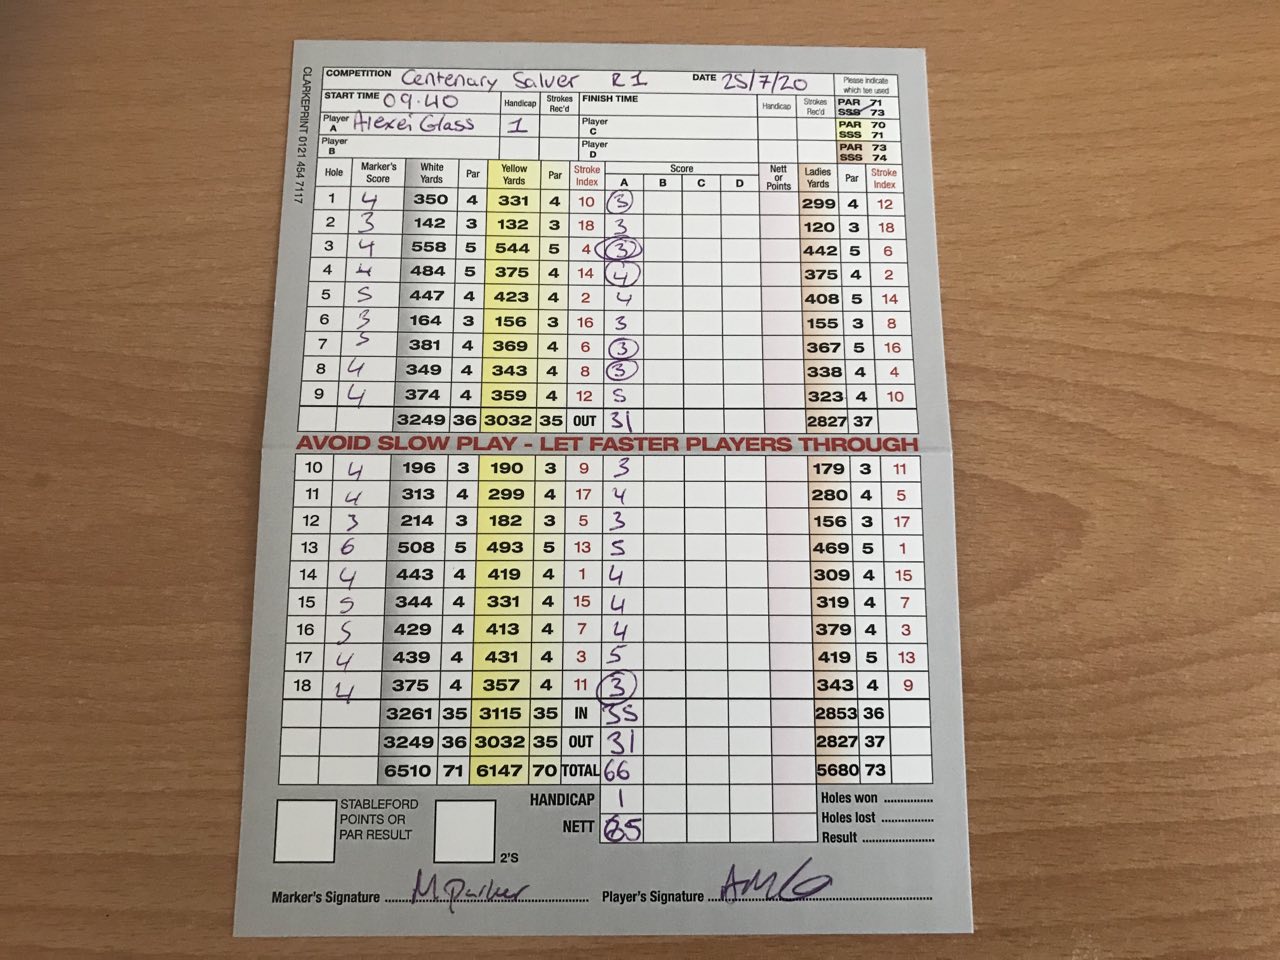 CLARKEPRINT 0121 454 7117
COMPETITION Centenary Salver R1 DATE 25/7/20 Please indicate which tee used
START TIME 09.40 Handicap Strokes Rec'd FINISH TIME Handicap Strokes Rec'd PAR 71 SSS 73
Player A Alexei Glass 1 Player C PAR 70 SSS 71
Player B Player D PAR 73 SSS 74
Hole Marker's Score White Yards Par Yellow Yards Par Stroke Index Score A B C D Nett or Points Ladies Yards Par Stroke Index
1 4 350 4 331 4 10 3 299 4 12
2 3 142 3 132 3 18 3 120 3 18
3 4 558 5 544 5 4 3 442 5 6
4 4 484 5 375 4 14 4 375 4 2
5 5 447 4 423 4 2 4 408 5 14
6 3 164 3 156 3 16 3 155 3 8
7 5 381 4 369 4 6 3 367 5 16
8 4 349 4 343 4 8 3 338 4 4
9 4 374 4 359 4 12 5 323 4 10
3249 36 3032 35 OUT 31 2827 37
AVOID SLOW PLAY - LET FASTER PLAYERS THROUGH
10 4 196 3 190 3 9 3 179 3 11
11 4 313 4 299 4 17 4 280 4 5
12 3 214 3 182 3 5 3 156 3 17
13 6 508 5 493 5 13 5 469 5 1
14 4 443 4 419 4 1 4 309 4 15
15 5 344 4 331 4 15 4 319 4 7
16 5 429 4 413 4 7 4 379 4 3
17 4 439 4 431 4 3 5 419 5 13
18 4 375 4 357 4 11 3 343 4 9
3261 35 3115 35 IN 35 2853 36
3249 36 3032 35 OUT 31 2827 37
6510 71 6147 70 TOTAL 66 5680 73
STABLEFORD POINTS OR PAR RESULT 2'S HANDICAP 1 Holes won
NETT 65 Holes lost
Result
Marker's Signature M Parker Player's Signature AMG